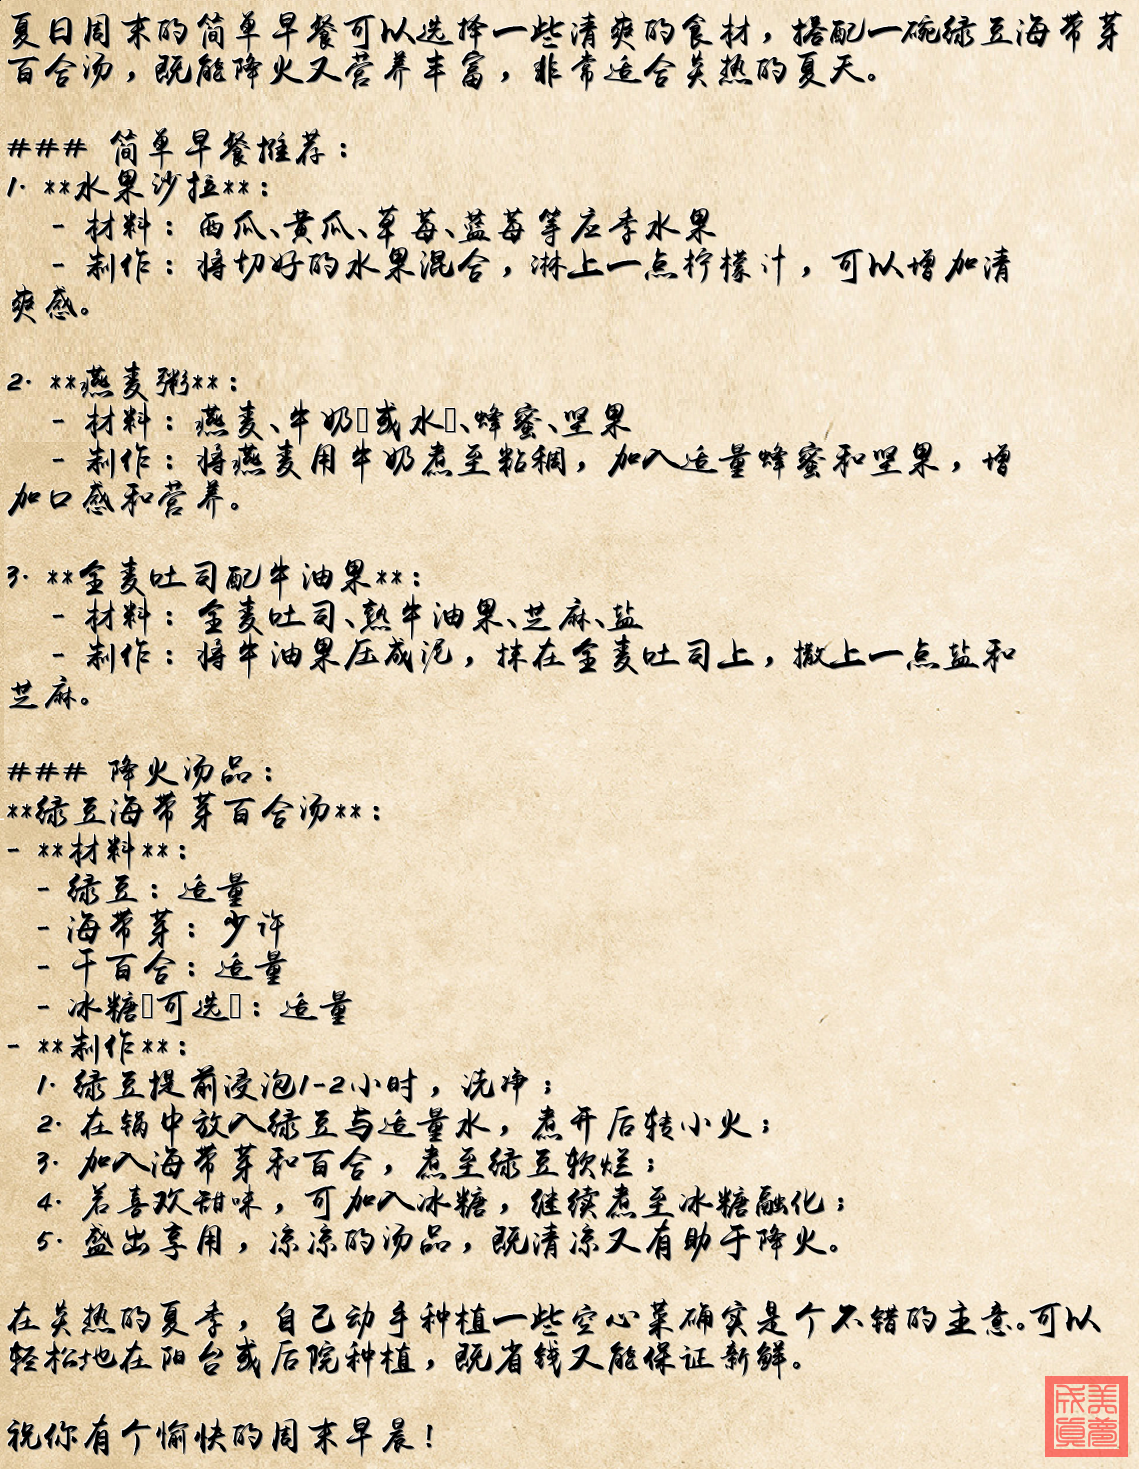 夏日周末的简单早餐可以选择一些清爽的食材，搭配一碗绿豆海带芽
百合汤，既能降火又营养丰富，非常适合炎热的夏天。
### 简单早餐推荐：
1. **水果沙拉**：
- 材料：西瓜、黄瓜、草莓、蓝莓等应季水果
- 制作：将切好的水果混合，淋上一点柠檬汁，可以增加清
爽感。
2. **燕麦粥**：
- 材料：燕麦、牛奶▯或水▯、蜂蜜、坚果
- 制作：将燕麦用牛奶煮至粘稠，加入适量蜂蜜和坚果，增
加口感和营养。
3. **全麦吐司配牛油果**：
- 材料：全麦吐司、熟牛油果、芝麻、盐
- 制作：将牛油果压成泥，抹在全麦吐司上，撒上一点盐和
芝麻。
### 降火汤品：
**绿豆海带芽百合汤**：
- **材料**：
- 绿豆：适量
- 海带芽：少许
- 干百合：适量
- 冰糖▯可选▯：适量
- **制作**：
1. 绿豆提前浸泡1-2小时，洗净；
2. 在锅中放入绿豆与适量水，煮开后转小火；
3. 加入海带芽和百合，煮至绿豆软烂；
4. 若喜欢甜味，可加入冰糖，继续煮至冰糖融化；
5. 盛出享用，凉凉的汤品，既清凉又有助于降火。
在炎热的夏季，自己动手种植一些空心菜确实是个不错的主意。可以
轻松地在阳台或后院种植，既省钱又能保证新鲜。
祝你有个愉快的周末早晨！
美夢成真